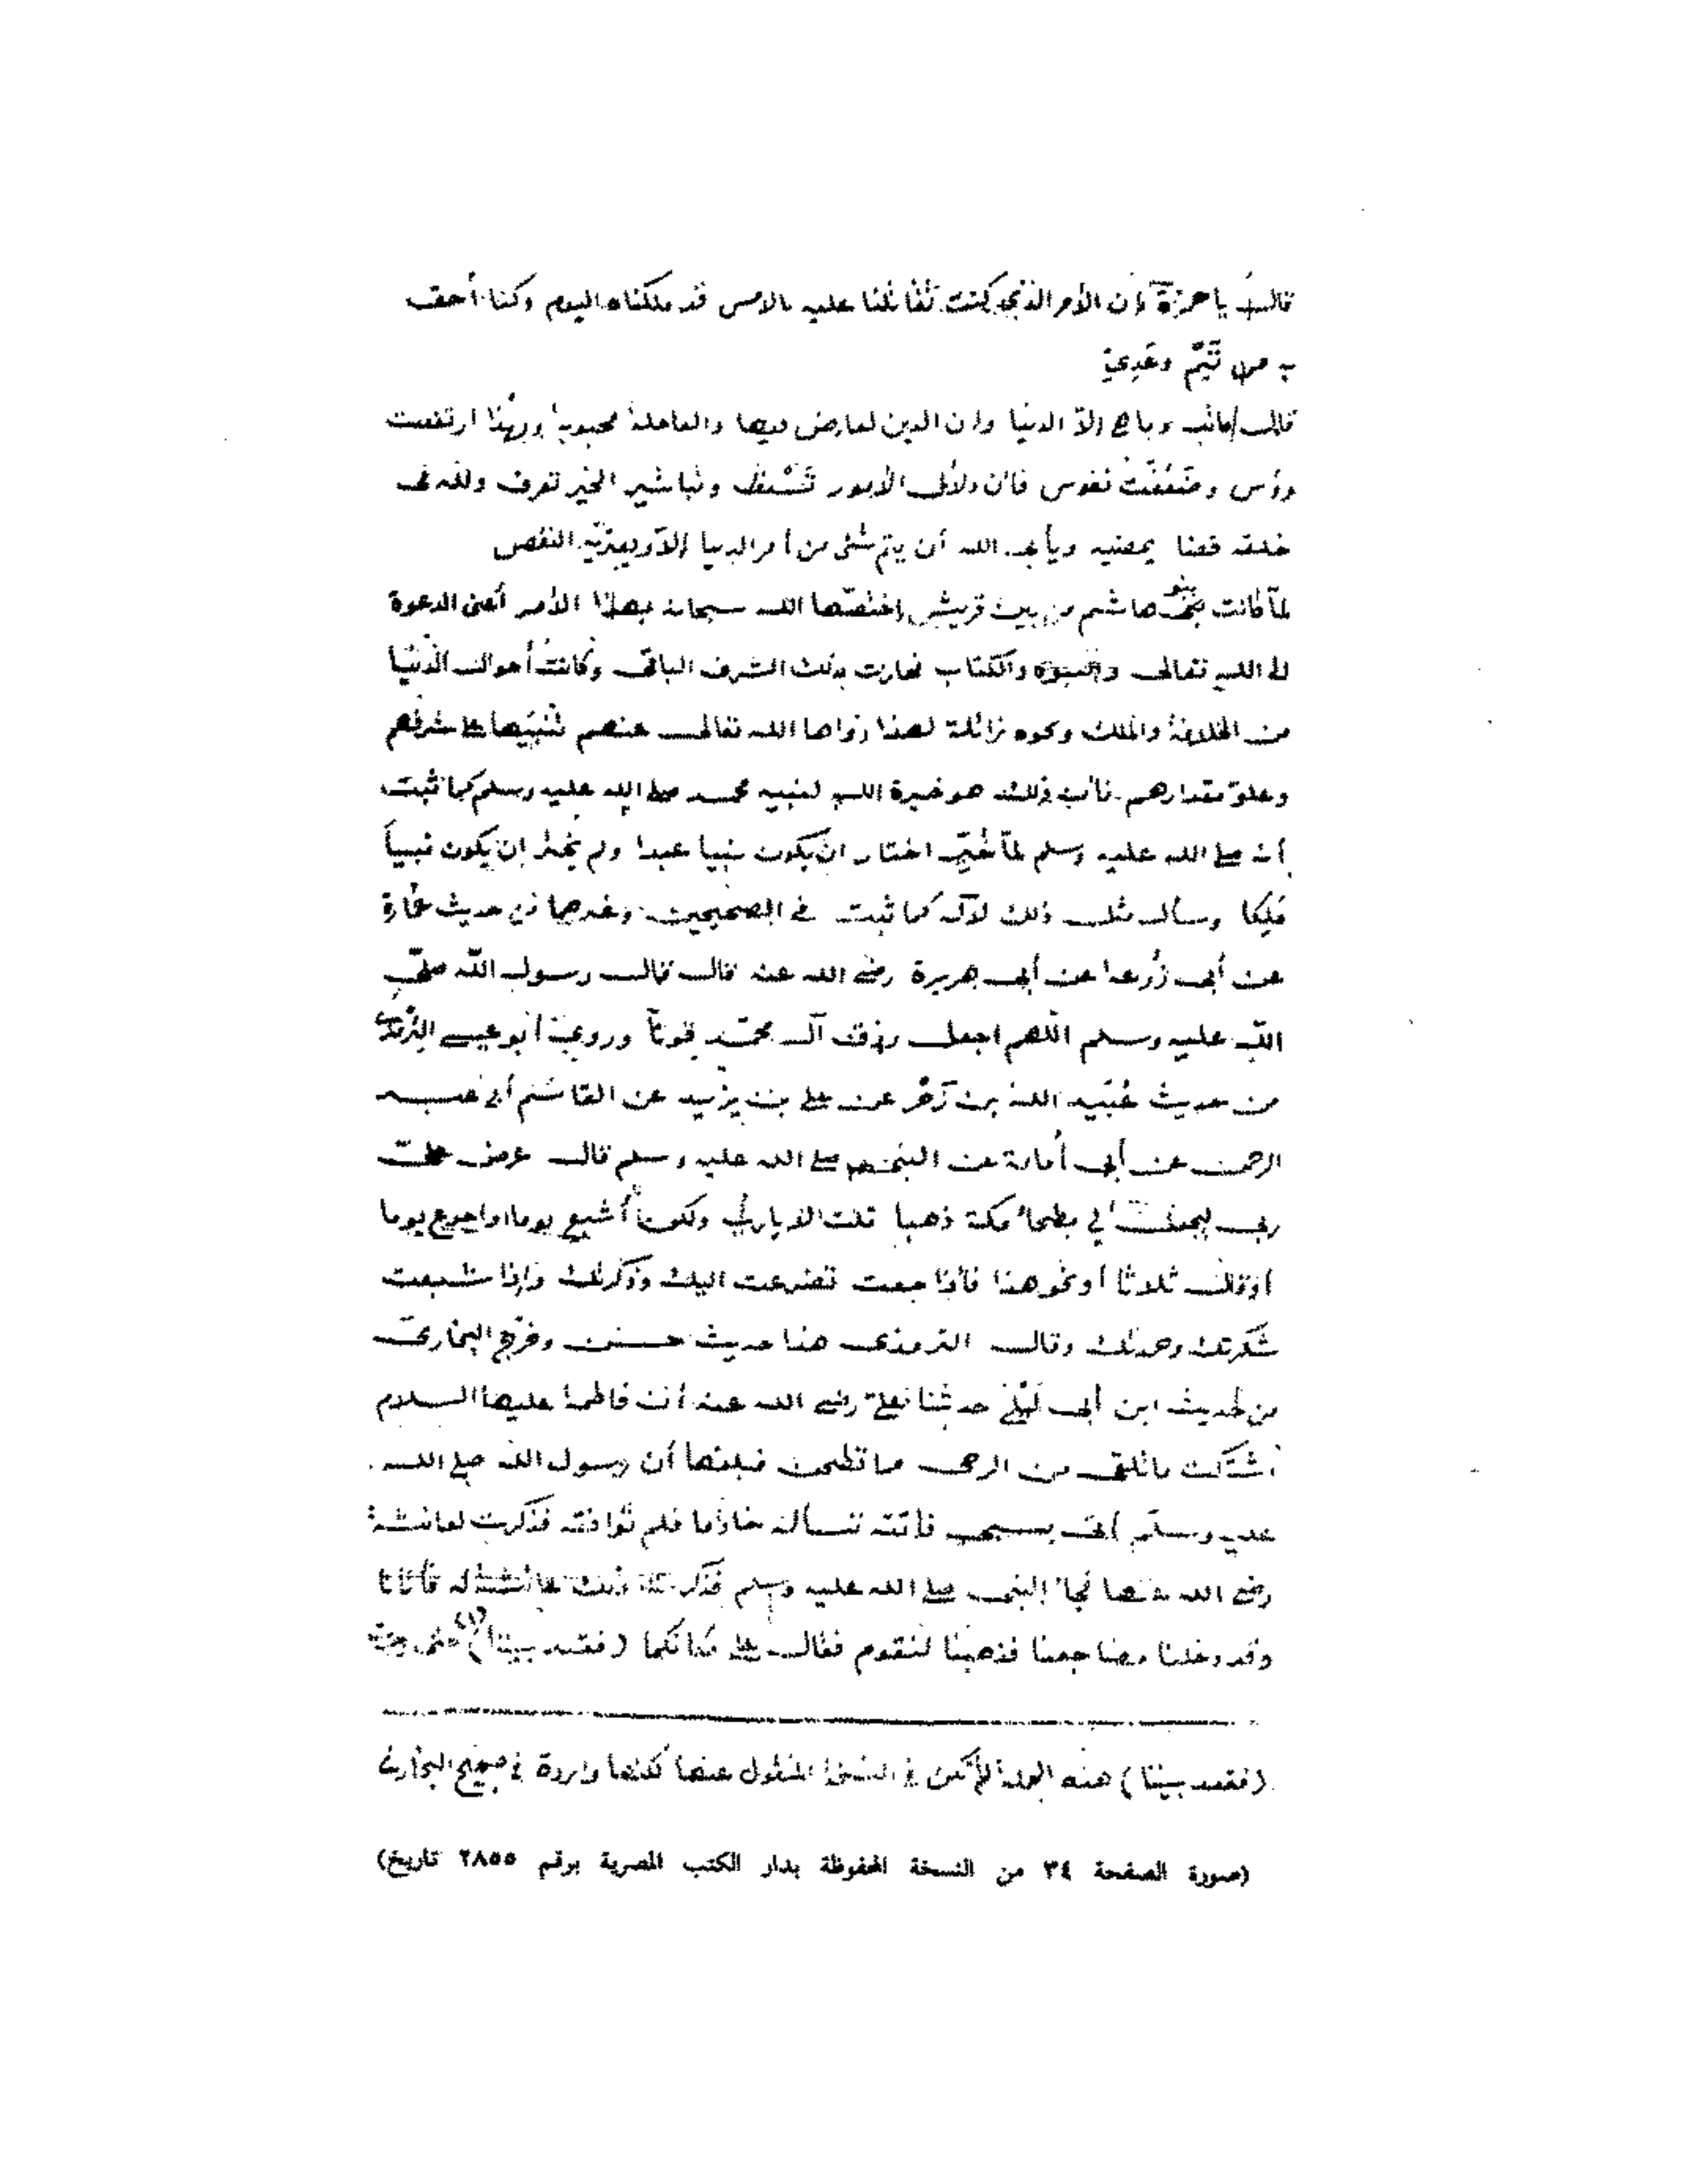 قال يا حمزة إن الأمر الذي كنت تقاتلنا عليه بالامس قد ملكناه اليوم وكنا أحق
به من تَيْم وعَدِيّ
قال وما هي إلا الدنيا وان الدين لعارض فيها والعاجلة محبوبة وبهذا ارتفعت
رؤس نفوس فان دلائل الأمور وتباشير الخير تعرف ولله في
خلقه قضا يمضيه ويأبى الله أن يتم شئ من أمر الدنيا إلا ويعتريه النقص
لمّا كانت بنو هاشم من بين قريش اختصّها الله سبحانه بهذا الأمر أعنى الدعوة
الى الله تعالى والنبوه والكتاب فحازت بذلك الشرف الباقى وكانت أحوال الدنيا
من الخلافة والملك ونحوه زائلة لهذا زواها الله تعالى عنهم تنبيها على شرفهم
وعلوّ مقدارهم فان ذلك هو خيرة الله لنبيه محمد صلى الله عليه وسلم كما ثبت
أنه صلى الله عليه وسلم لمّا خُيّر اختار ان يكون نبيا عبدا ولم يختر ان يكون نبياً
مَلِكا وسأل مثل ذلك لآله كما ثبت في الصحيحين وغيرهما من حديث عُمَارة
عن أبى زُرعة عن أبى هريرة رضى الله عنه قال قال رسول الله صلى
الله عليه وسلم اللهم اجعل رزق آل محمّد قوتاً وروى أبو عيسى الترمذى
من حديث عُبَيد الله بن زَحْر عن على بن يزيد عن القاسم أبى عبد
الرحمن عن أبى أُمامة عن النبى صلى الله عليه وسلم قال عرض علىّ
ربى ليجعل لي بطحاء مكة ذهبا قلت لا يا ربّ ولكن أشبع يوما واجوع يوما
أو قال ثلاثا أو نحو هذا فاذا جعت تضرعت اليك وذكرتك وإذا شبعت
شكرتك وحمدتك وقال الترمذى هذا حديث حسن وخرّج البخارىّ
من حديث ابن أبى ليلى حدثنا علىّ رضى الله عنه أن فاطمة عليها السلام
اشتكت ما تلقى من الرحى مما تطحن فبلغها أن رسول الله صلى الله
عليه وسلّم أتى بسبى فأتته تسأله خادما فلم توافقه فذكرت لعائشة
رضى الله عنها فجاء النبى صلى الله عليه وسلم فذكرت ذلك عائشة له فأتانا
وقد دخلنا مضاجعنا فذهبنا لنقوم فقال على مكانكما (فقعد بيننا)(١) حتى وجدت
(فقعد بيننا) هذه الجملة لم تكن في النسخة المنقول عنها لكنها واردة في صحيح البخارى
(صورة الصفحة ٣٤ من النسخة المحفوظة بدار الكتب المصرية برقم ٢٨٥٥ تاريخ)